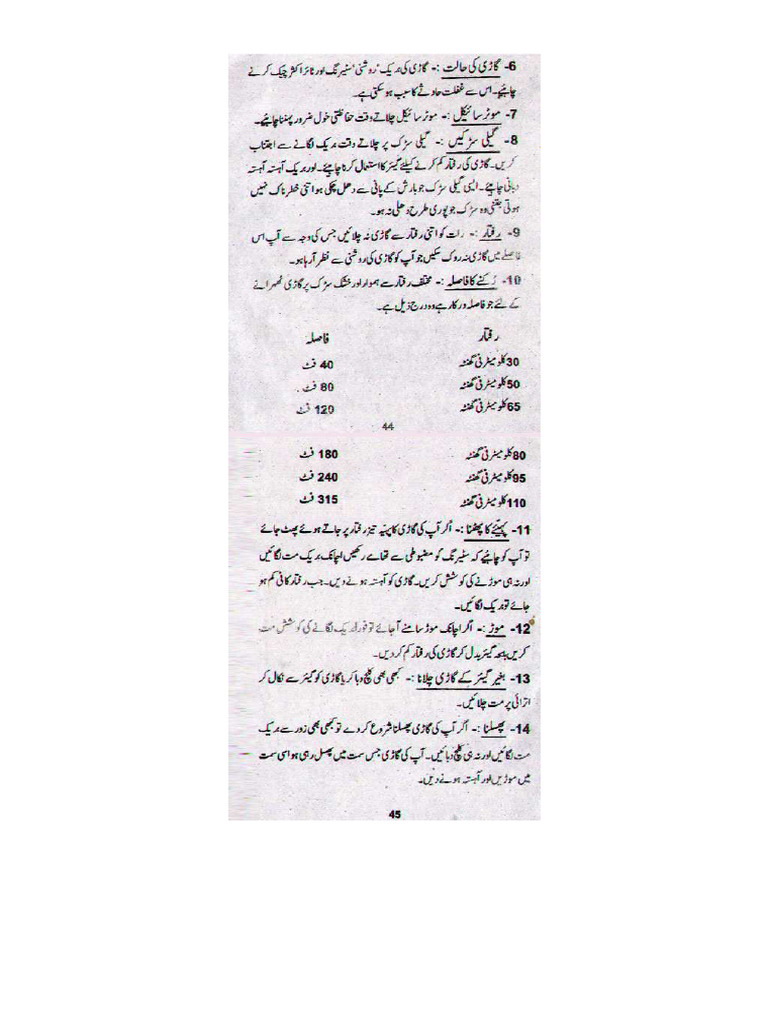 6- گاڑی کی حالت :- گاڑی کی بریک' روشنی' سٹیرنگ اور ٹائر اکثر چیک کرنے
چاہیے۔ اس سے غفلت حادثے کا سبب ہو سکتی ہے۔
7- موٹر سائیکل :- موٹر سائیکل چلاتے وقت حفاظتی خول ضرور پہننا چاہیے۔
8- گیلی سڑکیں :- گیلی سڑک پر چلاتے وقت بریک لگانے سے اجتناب
کریں۔ گاڑی کی رفتار کم کرنے کیلئے گیئر کا استعمال کرنا چاہیئے۔ اور بریک آہستہ آہستہ
دبانی چاہیئے۔ ایسی گیلی سڑک جو بارش کے پانی سے دھل چکی ہو اتنی خطرناک نہیں
ہوتی جتنی وہ سڑک جو پوری طرح دھلی نہ ہو۔
9- رفتار :- رات کو اتنی رفتار سے گاڑی نہ چلائیں جس کی وجہ سے آپ اس
فاصلے میں گاڑی نہ روک سکیں جو آپ کو گاڑی کی روشنی سے نظر آ رہا ہو۔
10- رُکنے کا فاصلہ :- مختلف رفتار سے ہموار اور خشک سڑک پر گاڑی ٹھہرانے
کے لئے جو فاصلہ درکار ہے وہ درج ذیل ہے۔
رفتار فاصلہ
30 کلو میٹر فی گھنٹہ 40 فٹ
50 کلو میٹر فی گھنٹہ 80 فٹ
65 کلو میٹر فی گھنٹہ 120 فٹ
44
80 کلو میٹر فی گھنٹہ 180 فٹ
95 کلو میٹر فی گھنٹہ 240 فٹ
110 کلو میٹر فی گھنٹہ 315 فٹ
11- پہیئے کا پھٹنا :- اگر آپ کی گاڑی کا پہیّہ تیز رفتار پر جاتے ہوئے پھٹ جائے
تو آپ کو چاہیے کہ سٹیرنگ کو مضبوطی سے تھامے رکھیں اچانک بریک مت لگائیں
اور نہ ہی موڑنے کی کوشش کریں۔ گاڑی کو آہستہ ہونے دیں۔ جب رفتار کافی کم ہو
جائے تو بریک لگائیں۔
12- موڑ :- اگر اچانک موڑ سامنے آ جائے تو فوراً بریک لگانے کی کوشش مت
کریں بلکہ گیئر بدل کر گاڑی کی رفتار کم کر دیں۔
13- بغیر گیئر کے گاڑی چلانا :- کبھی بھی کلچ دبا کر یا گاڑی کو گیئر سے نکال کر
اترائی پر مت چلائیں۔
14- پھسلنا :- اگر آپ کی گاڑی پھسلنا شروع کر دے تو کبھی بھی زور سے بریک
مت لگائیں اور نہ ہی کلچ دبائیں۔ آپ کی گاڑی جس سمت میں پھسل رہی ہو اسی سمت
میں موڑیں اور آہستہ ہونے دیں۔
45